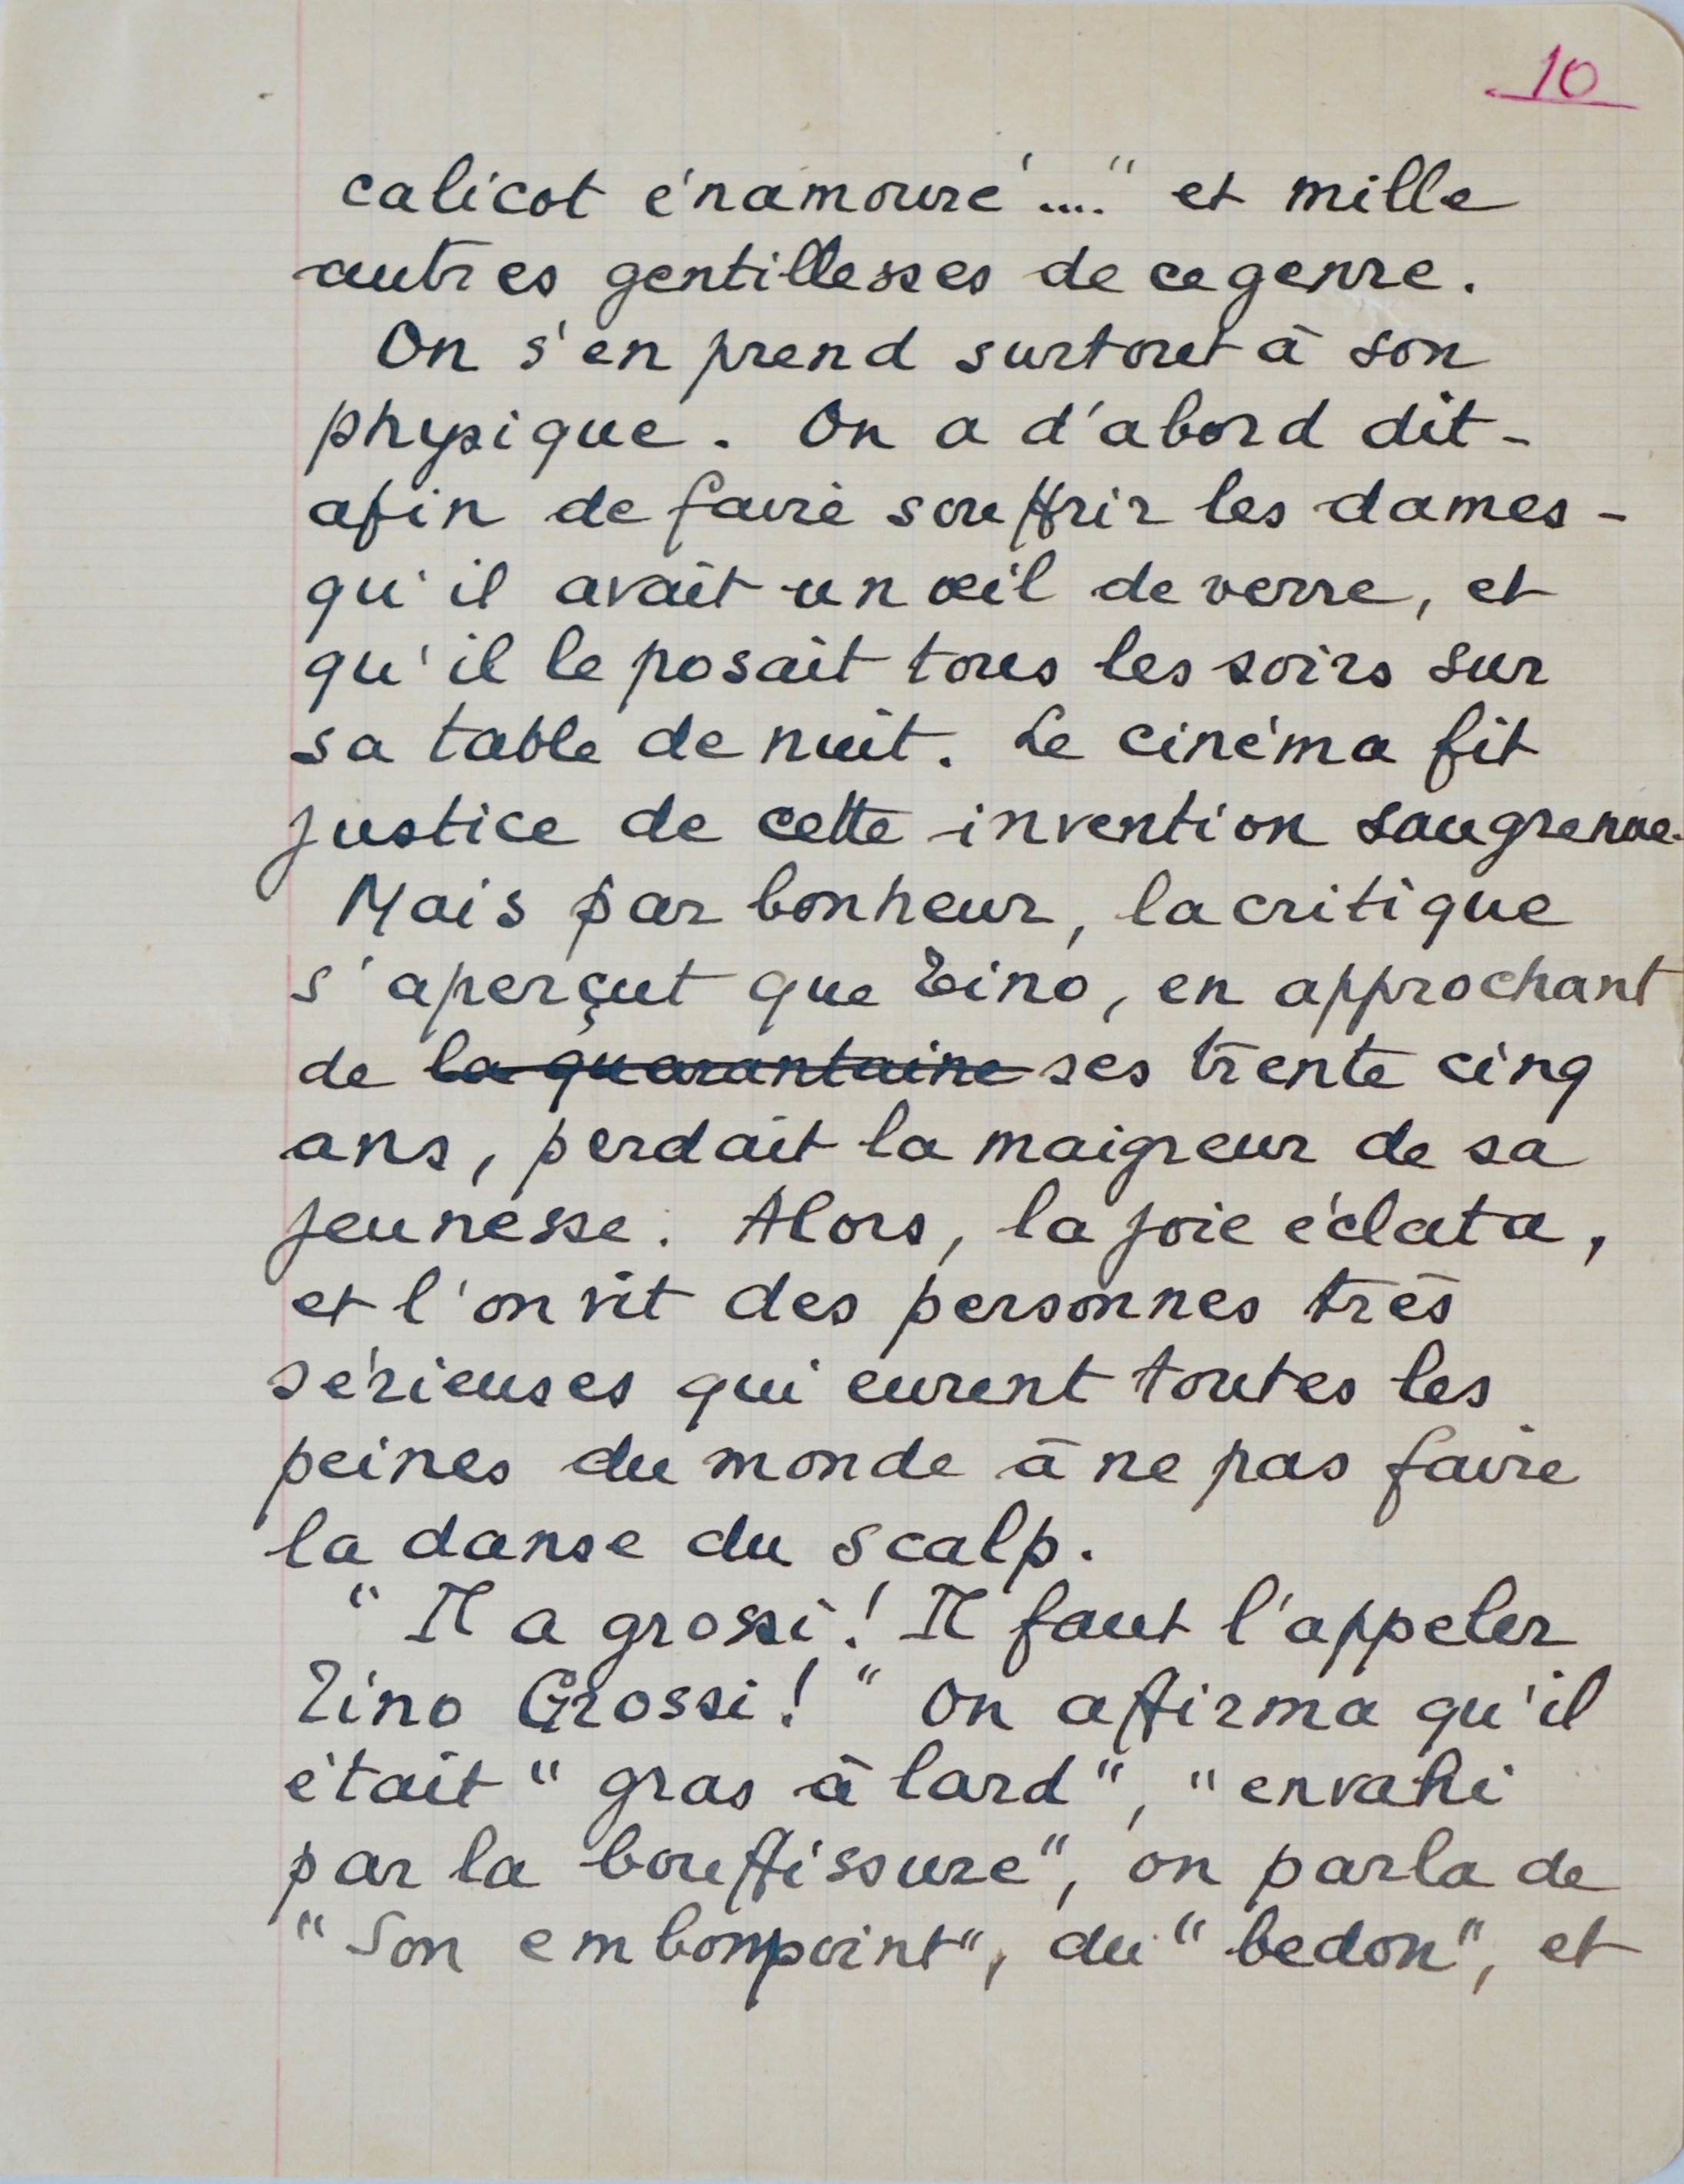 10
calicot énamouré...." et mille
autres gentillesses de ce genre.
On s'en prend surtout à son
physique. On a d'abord dit -
afin de faire souffrir les dames -
qu'il avait un œil de verre, et
qu'il le posait tous les soirs sur
sa table de nuit. Le cinéma fit
justice de cette invention saugrenue.
Mais par bonheur, la critique
s'aperçut que Tino, en approchant
de la quarantaine ses trente cinq
ans, perdait la maigreur de sa
jeunesse. Alors, la joie éclata,
et l'on vit des personnes très
sérieuses qui eurent toutes les
peines du monde à ne pas faire
la danse du scalp.
"Il a grossi! Il faut l'appeler
Tino Grossi!" On affirma qu'il
était "gras à lard", "envahi
par la bouffissure", on parla de
"Son embompoint", du "bedon", et